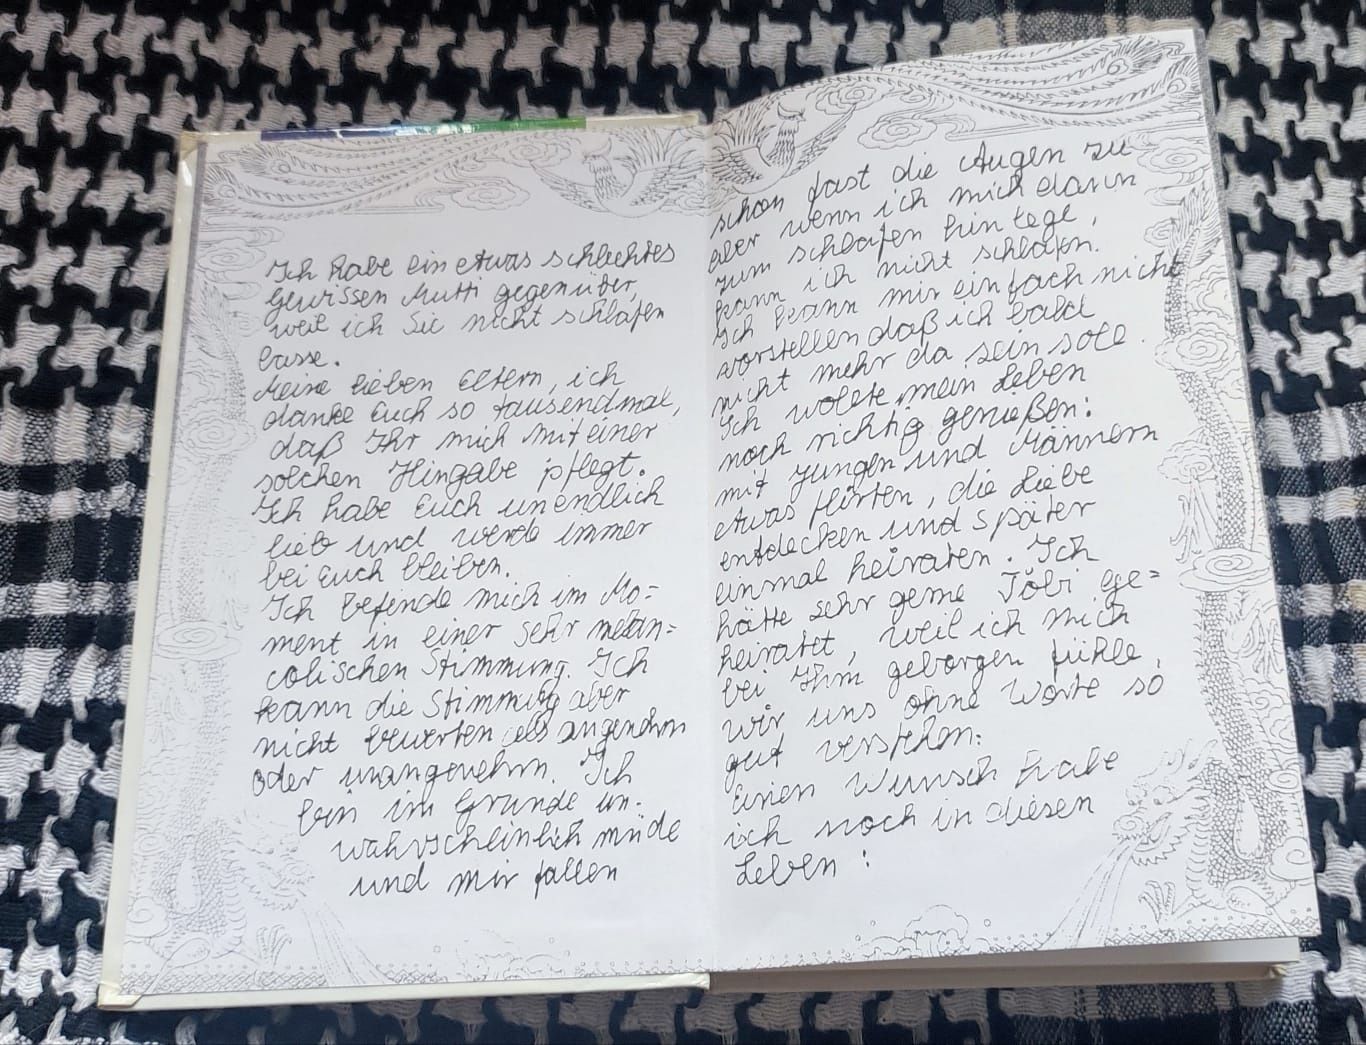 Ich habe ein etwas schlechtes
Gewissen Mutti gegenüber,
weil ich Sie nicht schlafen
lasse.
Meine lieben Eltern, ich
danke Euch so tausendmal,
daß Ihr mich mit einer
solchen Hingabe pflegt.
Ich habe Euch unendlich
lieb und werde immer
bei Euch bleiben.
Ich befinde mich im Mo=
ment in einer sehr melan=
colischen Stimmung. Ich
kann die Stimmung aber
nicht bewerten als angenehm
oder unangenehm. Ich
bin im Grunde un-
wahrscheinlich müde
und mir fallen
schon fast die Augen zu
aber wenn ich mich dann
zum schlafen hinlege,
kann ich nicht schlafen.
Ich kann mir einfach nicht
vorstellen daß ich bald
nicht mehr da sein soll.
Ich wollte mein Leben
noch richtig genießen:
mit Jungen und Männern
etwas flirten, die Liebe
entdecken und später
einmal heiraten. Ich
hätte sehr gerne Tobi ge=
heiratet, weil ich mich
bei Ihm geborgen fühle,
wir uns ohne Worte so
gut verstehen:
Einen Wunsch habe
ich noch in diesen
Leben: